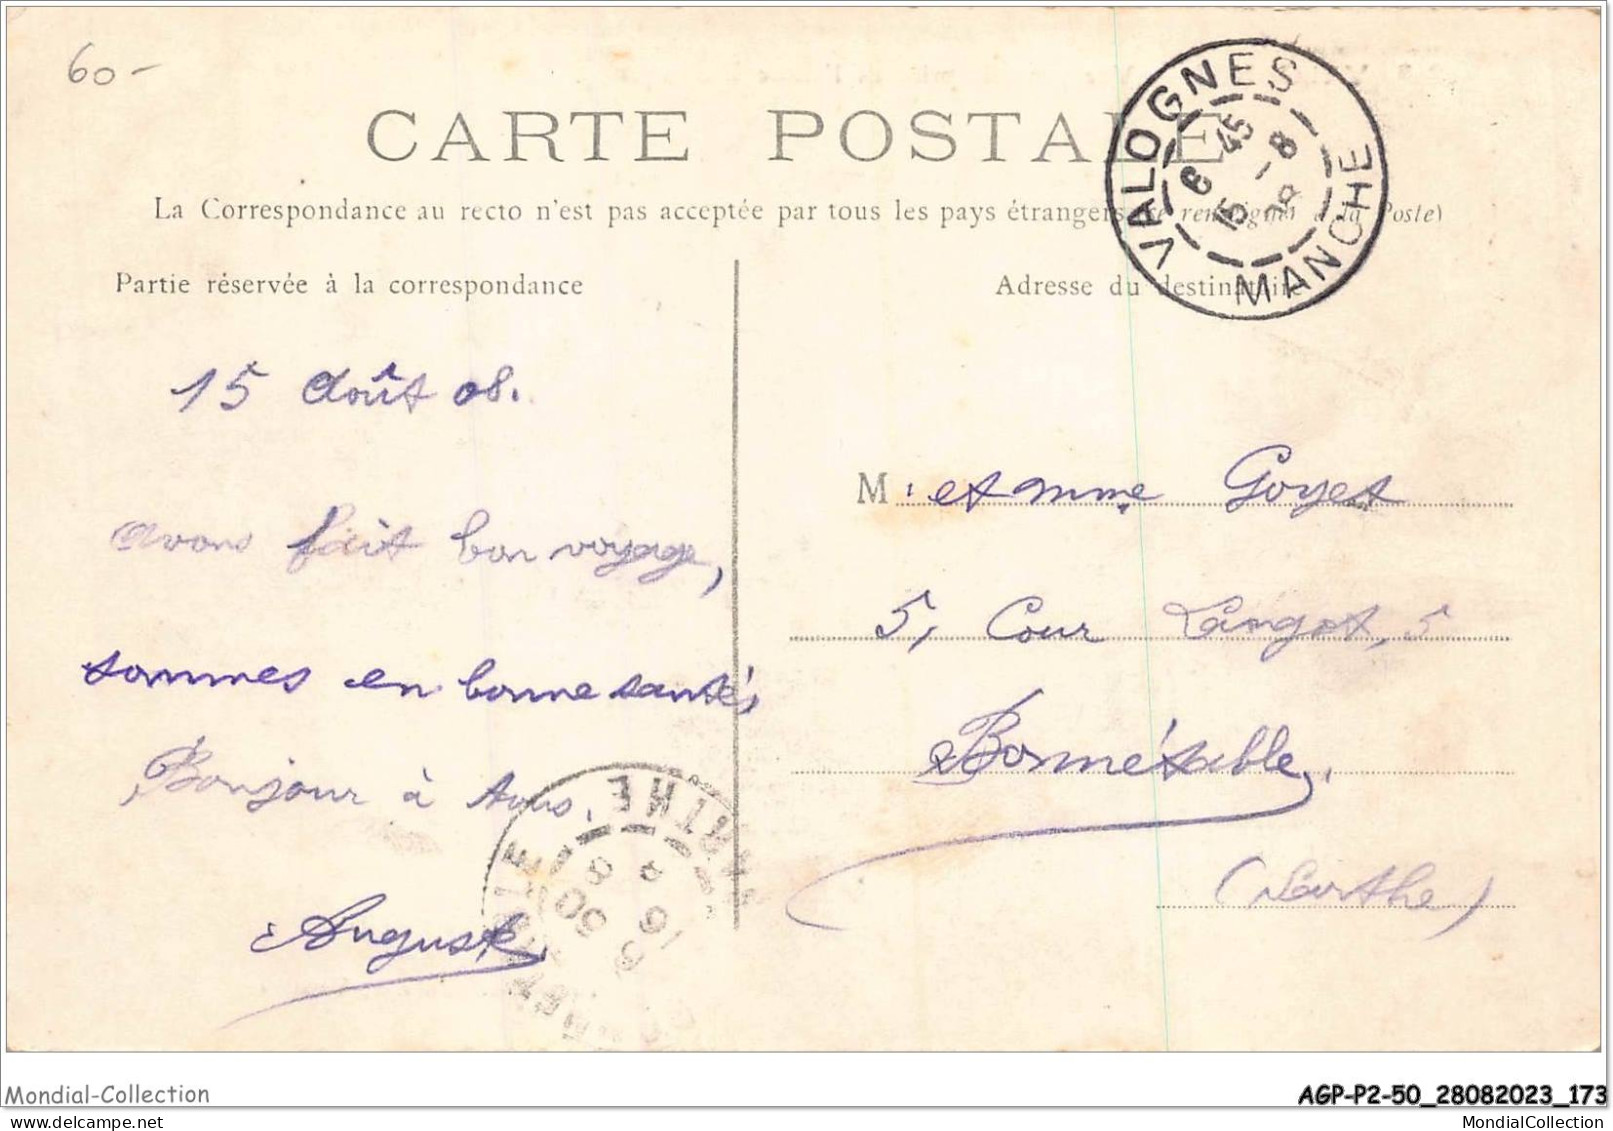 60-
CARTE POSTALE
La Correspondance au recto n'est pas acceptée par tous les pays étrangers (se renseigner à la Poste)
VALOGNES
6 45
15 - 8
08
MANCHE
Partie réservée à la correspondance
Adresse du destinataire
15 Août 08.
avons fait bon voyage,
sommes en bonne santés,
Bonjour à tous.
Auguste
M. et mme Goyet
5, Cour Langot, 5
Bonnétable,
(Sarthe)
SARTHE
Mondial-Collection
AGP-P2-50_28082023_173
www.delcampe.net
MondialCollection